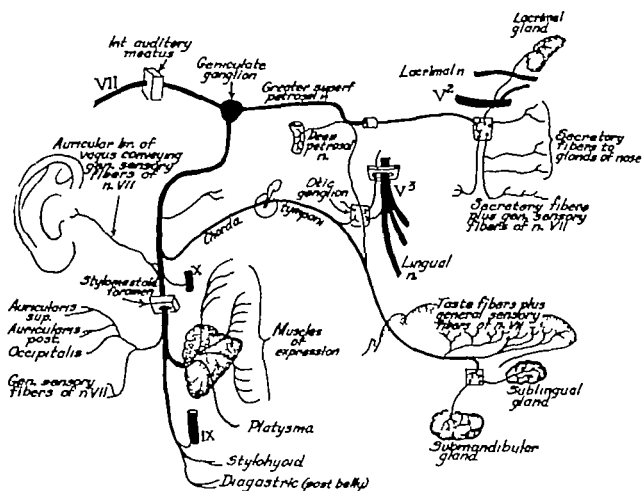 Int. auditory
meatus
VII
Geniculate
ganglion
Greater superf.
petrosal n.
Lacrimal
gland
Lacrimal n.
V²
Deep
petrosal
n.
Secretory
fibers to
glands of nose
Secretory fibers
plus gen. sensory
fibers of n. VII
Auricular br. of
vagus conveying
gen. sensory
fibers of
n. VII
Otic
ganglion
V³
Chorda
tympani
Lingual
n.
X
Stylomastoid
foramen
Auricularis
sup.
Auricularis
post.
Occipitalis
Gen. sensory
fibers of n VII
Muscles
of
expression
Taste fibers plus
general sensory
fibers of n. VII
Sublingual
gland
Submandibular
gland
Platysma
IX
Stylohyoid
Diagastric (post belly)